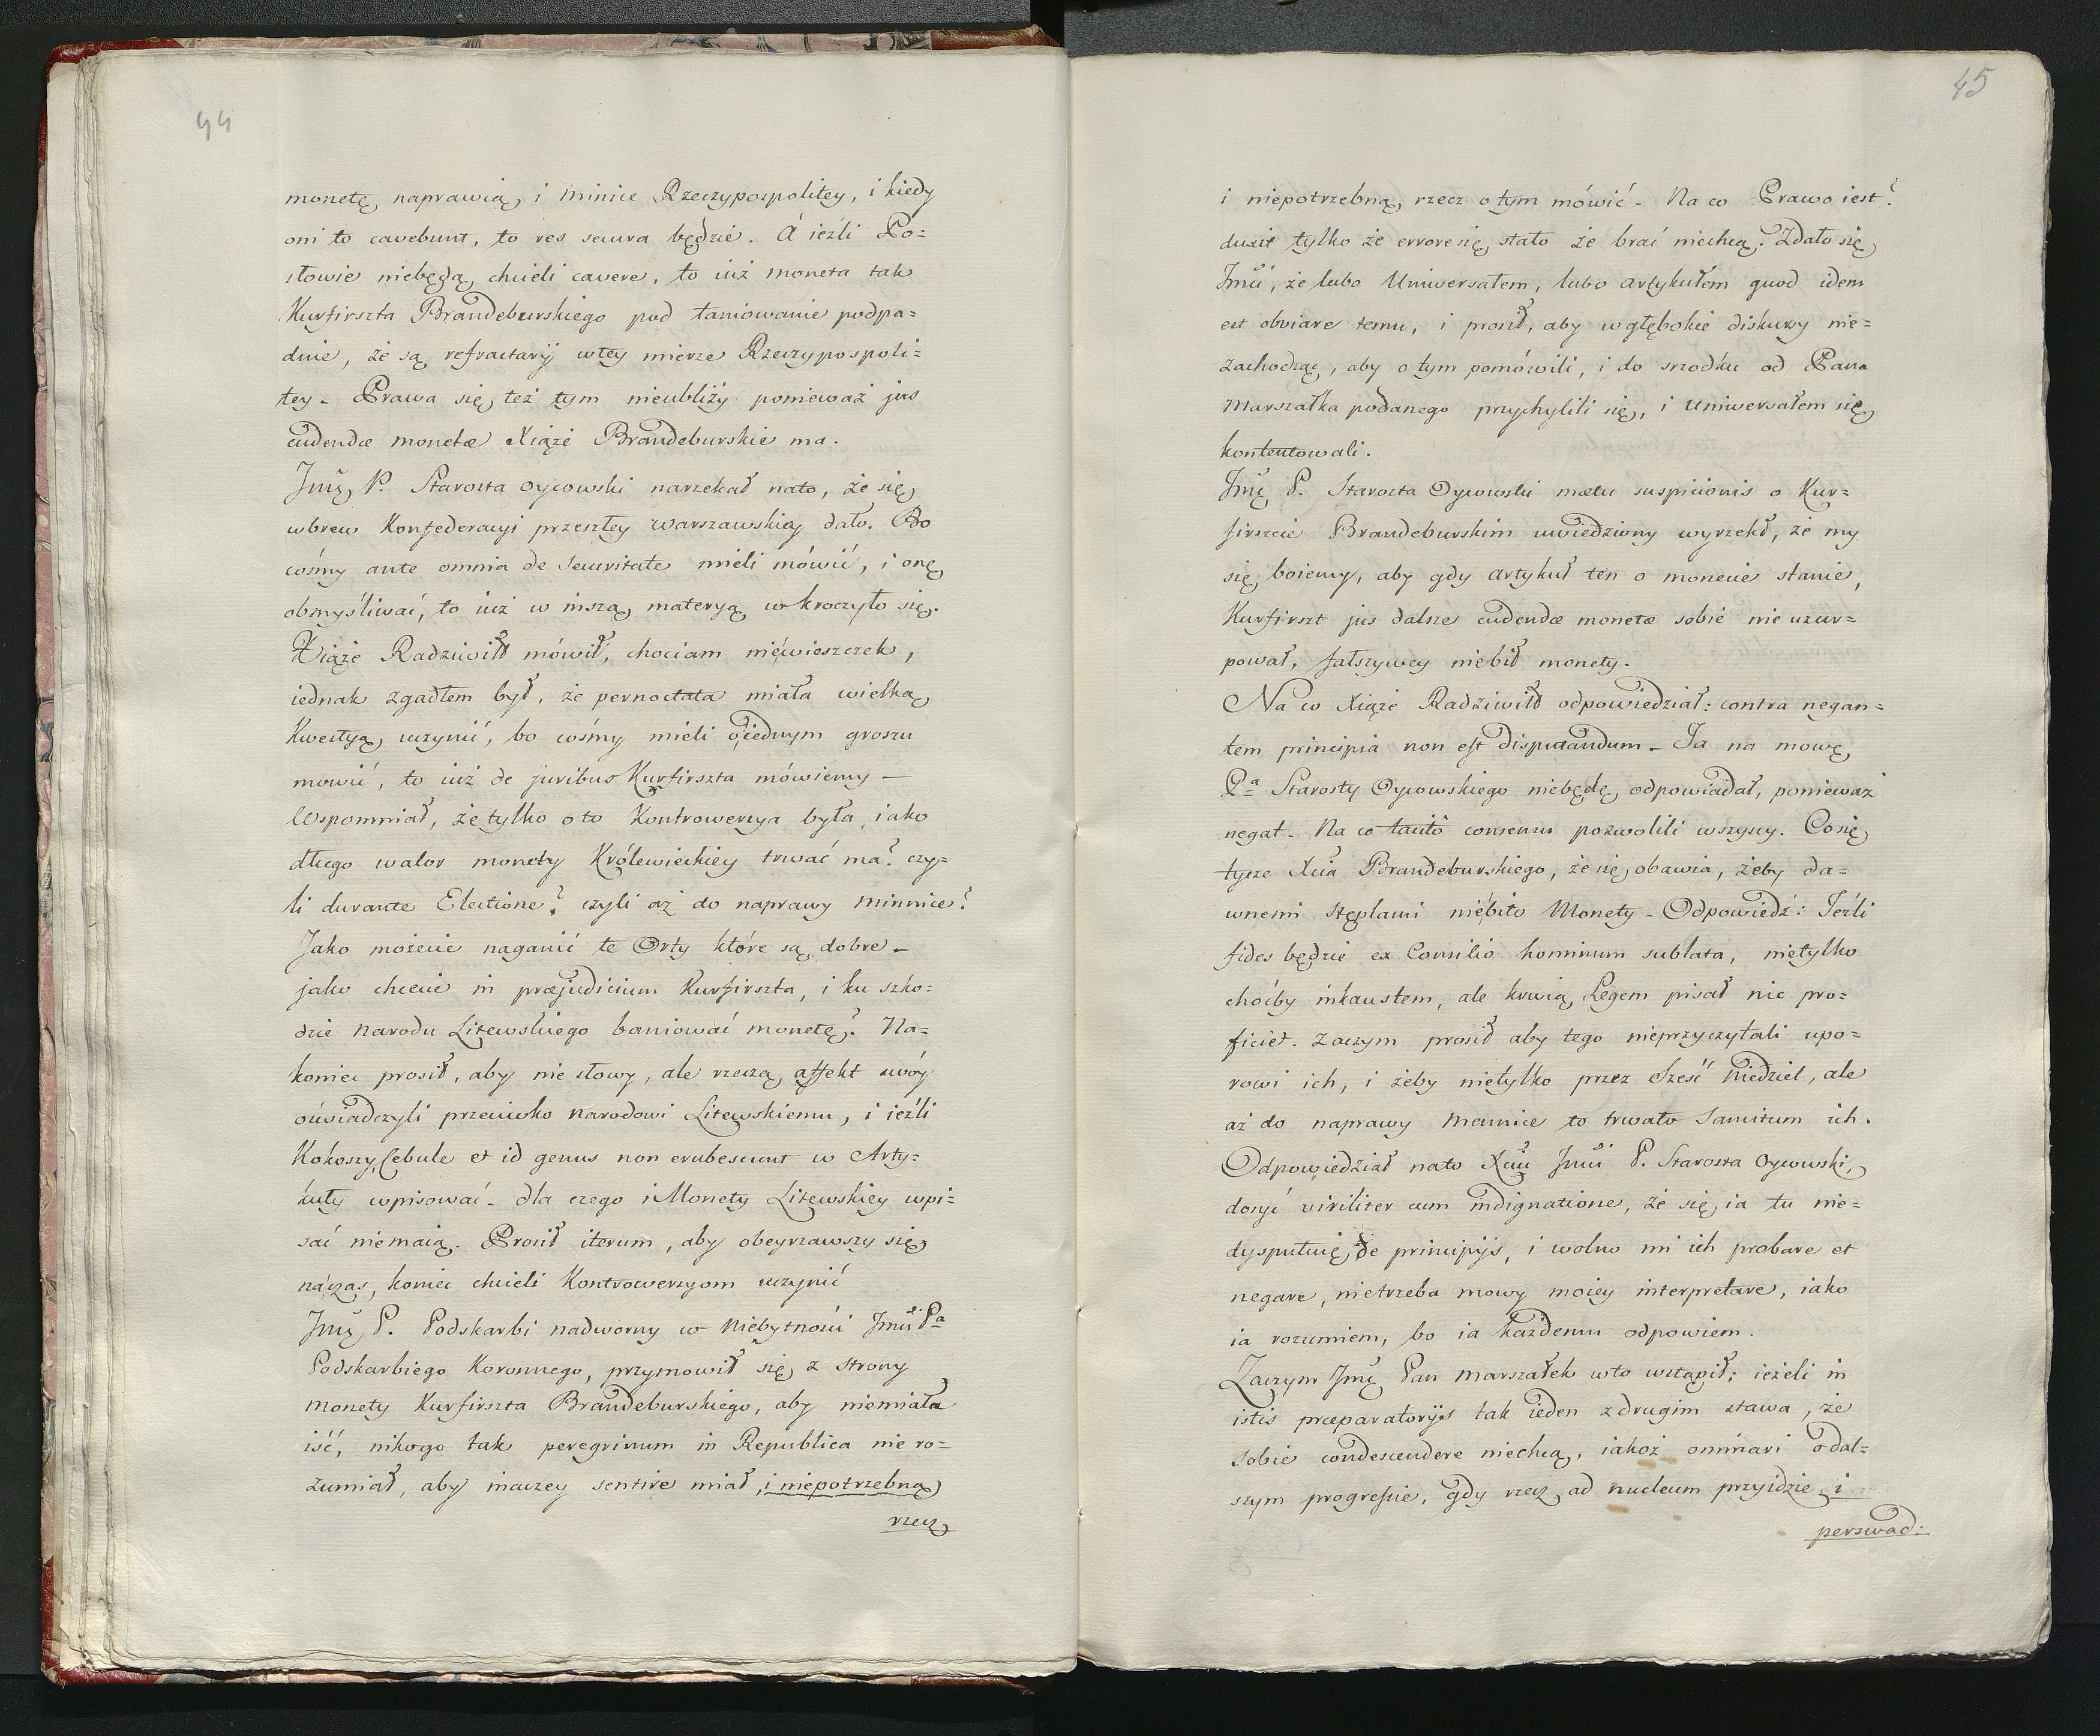 44
monetę naprawią, i minice Rzeczypospolitey, i kiedy
oni to cavebunt, to res secura będzie. A ieźli Po=
słowie niebędą chcieli cavere, to iuż moneta tak
Kurfirszta Brandeburskiego pod taniowanie podpa=
dnie, że są refractarij wtey mierze Rzeczypospoli=
tey. Prawa się też tym nieubliży ponieważ jus
cudendæ monetæ Xiąże Brandeburskie ma.
Jmć P. Starosta Oycowski narzekał nato, że się
wbrew Konfederacyi przeszłey Warszawskiey dało. Bo
cośmy ante omnia de securitate mieli mówić, i onę
obmyśliwać, to iuż w inszą materyą wkroczyło się.
Xiąże Radziwiłł mówił, chociam niewieszczek,
iednak zgadłem był, że pernoctata miała wielką
Kwestyą uczynić, bo cośmy mieli oiednym groszu
mowić, to iuż de juribus Kurfirszta mówiemy —
Wspomniał, że tylko o to Kontrowersya była, iako
długo walor monety Królewieckiey trwać ma? czy=
li durante Electione? czyli aż do naprawy minnice?
Jako możecie naganić te Orty które są dobre —
jako chcecie in præjudicium Kurfirszta, i ku szko=
dzie Narodu Litewskiego baniować monetę? Na=
koniec prosił, aby nie słowy, ale rzeczą affekt swóy
oświadczyli przeciwko Narodowi Litewskiemu, i ieźli
Kokoszy, Cebule et id genus non erubescunt w Arty=
kuły wpisować. dla czego i Monety Litewskiey wpi=
sać niemaią. Prosił iterum, aby obeyrzawszy się
náczas, koniec chcieli Kontrowersyom uczynić
Jmć P. Podskarbi nadworny w Niebytności Jmci Pa
Podskarbiego Koronnego, przymowił się z strony
monety Kurfirszta Brandeburskiego, aby niemiała
iść, nikogo tak peregrinum in Republica nie ro=
zumiał, aby inaczey sentire miał, i niepotrzebną
rzecz
45
i niepotrzebną rzecz o tym mówić. Na co Prawo iest?
dusit tylko że errore się stało że brać niechcą. Zdało się
Jmci, że lubo Uniwersałem, lubo artykułem quod idem
est obviare temu, i prosił, aby w głębokie diskursy nie=
zachodząc, aby o tym pomówili, i do srzodku od Pana
Marszałka podanego przychylili się, i Uniwersałem się
kontentowali.
Jmć P. Starosta Oycowski metu suspicionis o Kur=
firszcie Brandeburskim uwiedziony wyrzekł, że my
się boiemy, aby gdy artykuł ten o monecie stanie,
Kurfirszt jus dalsze cudendæ monetæ sobie nie uzur=
pował, fałszywey niebił monety.
Na co Xiąże Radziwiłł odpowiedział: contra negan=
tem principia non est disputandum. Ja na mowę
Pa Starosty Oycowskiego niebędę odpowiadał, ponieważ
negat. Na co tacitô consensu pozwolili wszyscy. Cosię
tycze Xcia Brandeburskiego, że się obawia, żeby da=
wnemi stęplami niebito Monety - Odpowiedź: Jeźli
fides będzie ex Consilio hominum sublata, nietylko
choćby inkaustem, ale krwią Legem pisał nic pro=
ficiet. Zaczym prosił aby tego nieprzyczytali upo=
rowi ich, i żeby nietylko przez Sześć Niedziel, ale
aż do naprawy Mennice to trwało Sancitum ich.
Odpowiedział nato Xciu Jmci P. Starosta Oycowski,
dosyć viriliter cum indignatione, że się ia tu nie=
dysputuię de principijs, i wolno mi ich probare et
negare, nietrzeba mowy moiey interpretare, iako
ia rozumiem, bo ia każdemu odpowiem.
Zaczym Jmć Pan Marszałek wto wstąpił: ieżeli in
istis præparatorijs tak ieden z drugim stawa, że
sobie condescendere niechcą, iakoż ominari o dal=
szym progressie, gdy rzecz ad nucleum przyidzie i
perswad: